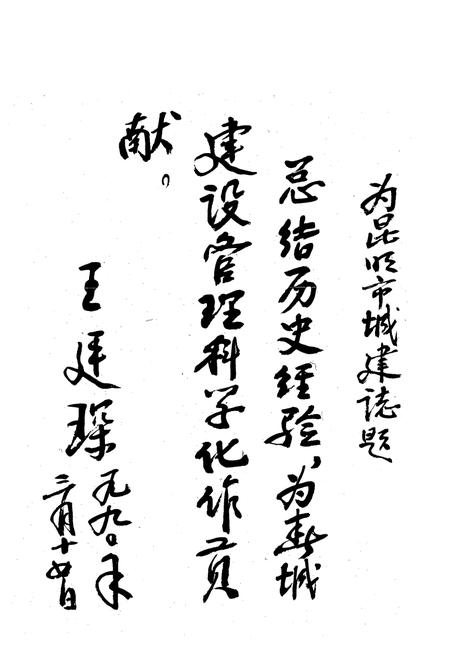 为昆明市城建誌题
总结历史经验，为春城
建设管理科学化作贡
献。
王廷琛
一九九〇年
三月十日